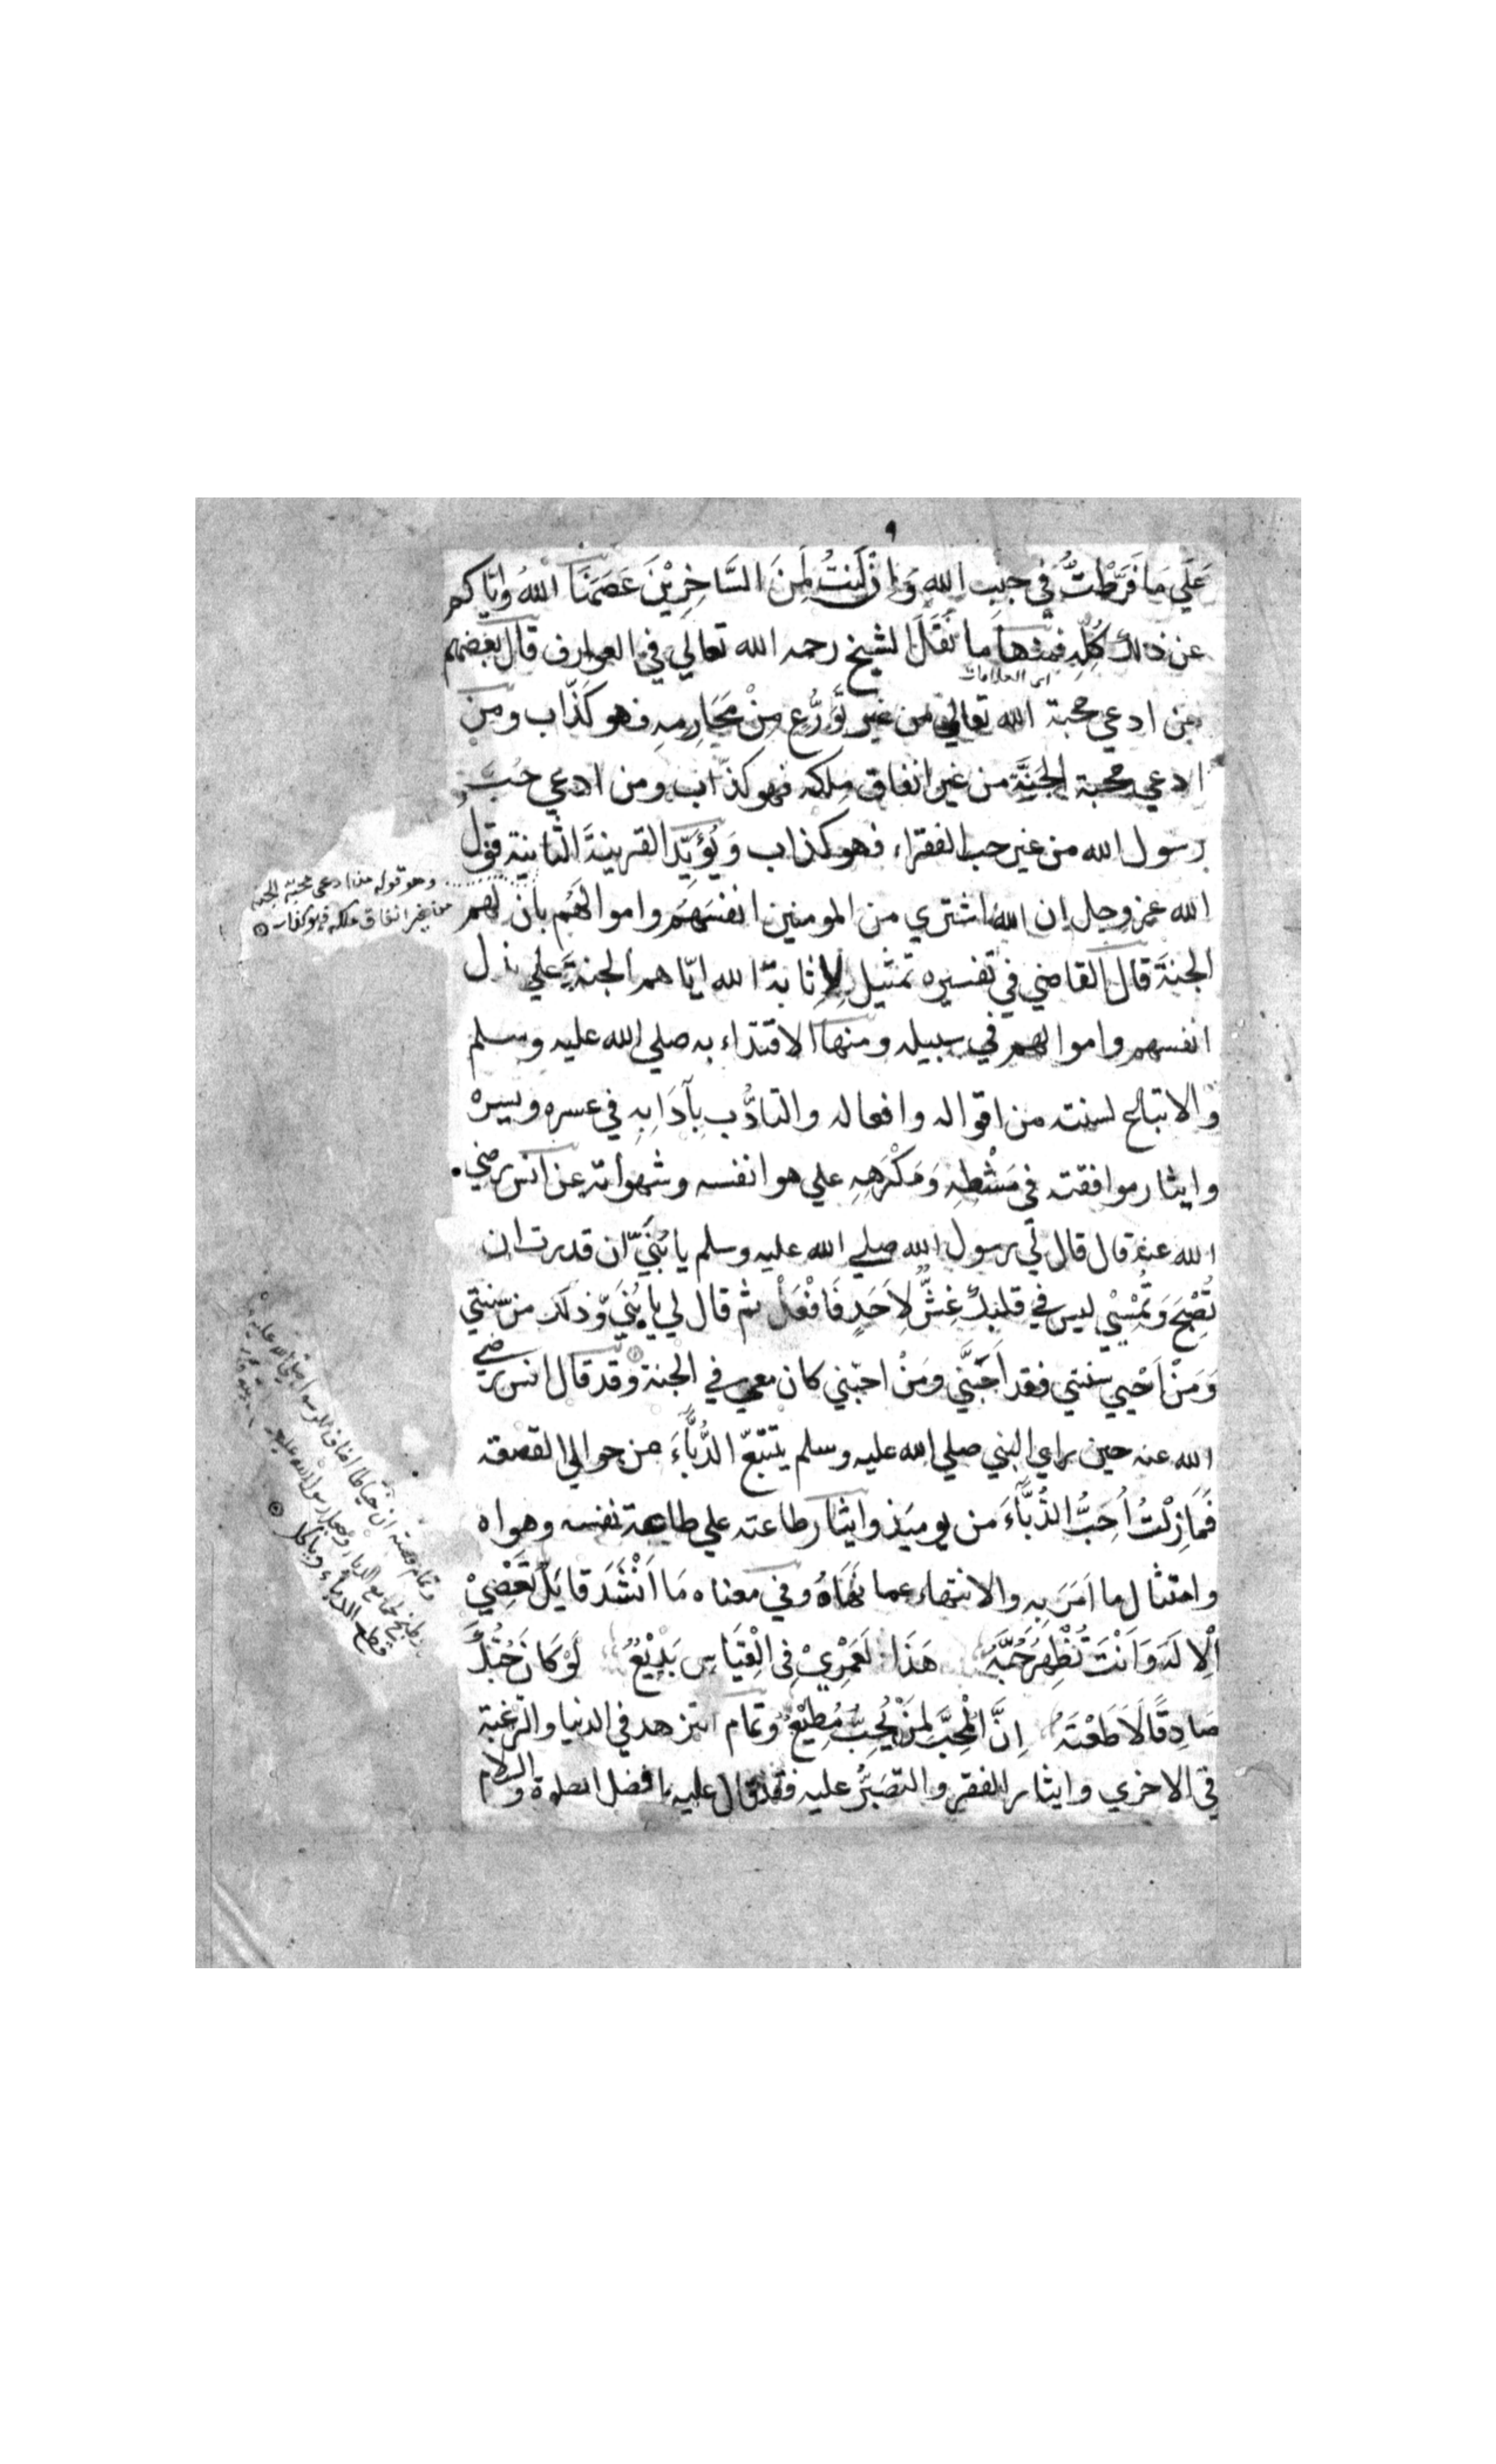 ٩
عَلَي مَا فَرَّطْتُ فِي جنب الله وَاِنْ كُنتُ لَمِنَ السَّاخِرِيْنَ عَصَمَنَا اللهُ وايّاكم
عن ذلك كُلِّهِ فمنها ما نَقَلَ الشيخ رحمه الله تعالي في العوارف قال بعضهم
اى العلامات
من ادعي محبة الله تعالي من غير تَوَرُّعٍ مِنْ مَحَارِمِهِ فهو كَذَّاب ومَنْ
ادعي محبة الجَنَّةِ من غير انفاق مِلكه فهو كذّاب ومن ادعي حُبَّ
رسول الله من غير حب الفقراء فهو كذاب وَيُؤَيِّدُ القرينةَ الثانيةَ قول
وهو قوله من ادعى محبة الجنة
من غير انفاق ملكه فهو كذاب
الله عز وجل ان اللهَ اشتري من المومنين انفسَهُم واموالَهُم بان لهم
الجنةَ قال القاضي في تفسيره تمثيل لِاِثابة الله ايّاهم الجنةَ علي بذل
انفسهم واموالهم في سبيله ومنها الاقتداء به صلي الله عليه وسلم
والاتباع لسنته من اقواله وافعاله والتادُّب بِآدَابِهِ في عسره ويسره
وايثار موافقته في مَنْشَطِهِ وَمَكْرَهِهِ علي هوا نفسه وشهواته عن انس رضي
الله عنه قال قال لي رسول الله صلي الله عليه وسلم يا بُنَيَّ ان قدرت ان
تُصْبِحَ وَتُمْسِيْ ليس في قلبك غِشٌّ لِاَحَدٍ فَافْعَلْ ثم قال لي يا بُنَيَّ وذلك من سنتي
وَمَنْ اَحْيي سنتي فقد اَحَبَّنِي ومَنْ احبّني كان معي في الجنة وقد قال انس رضي
الله عنه حين راي النبي صلي الله عليه وسلم يتتبّع الدُّبَّاءَ من حوالي القصعة
فَمَا زِلْتُ اُحِبُّ الدُّبَّاءَ من يوميذ وايثار طاعته علي طاعة نفسه وهواه
وامتثال ما اَمَرَ بِهِ والانتهاء عما نَهَاهُ وفي معناه مَا اَنْشَدَ قايل تَعْصِيْ
الْاِلٰهَ وَاَنْتَ تُظْهِرُ حُبَّهُ هَذَا لَعَمْرِيْ فِى الْقِيَاسِ بَدِيْعُ لَوْ كَانَ حُبُّكَ
صَادِقًا لَاَطَعْتَهُ اِنَّ الْمُحِبَّ لِمَنْ يُحِبُّ مُطِيْعُ وتمام التزهد في الدنيا والرغبة
في الاخري وايثار الفقر والتصبُّر عليه فقد قال عليه افضل الصلوة والسلام
وتمام قصته ان خياطا اضاف للرسول صلى الله عليه
قطع الدباء وياكل